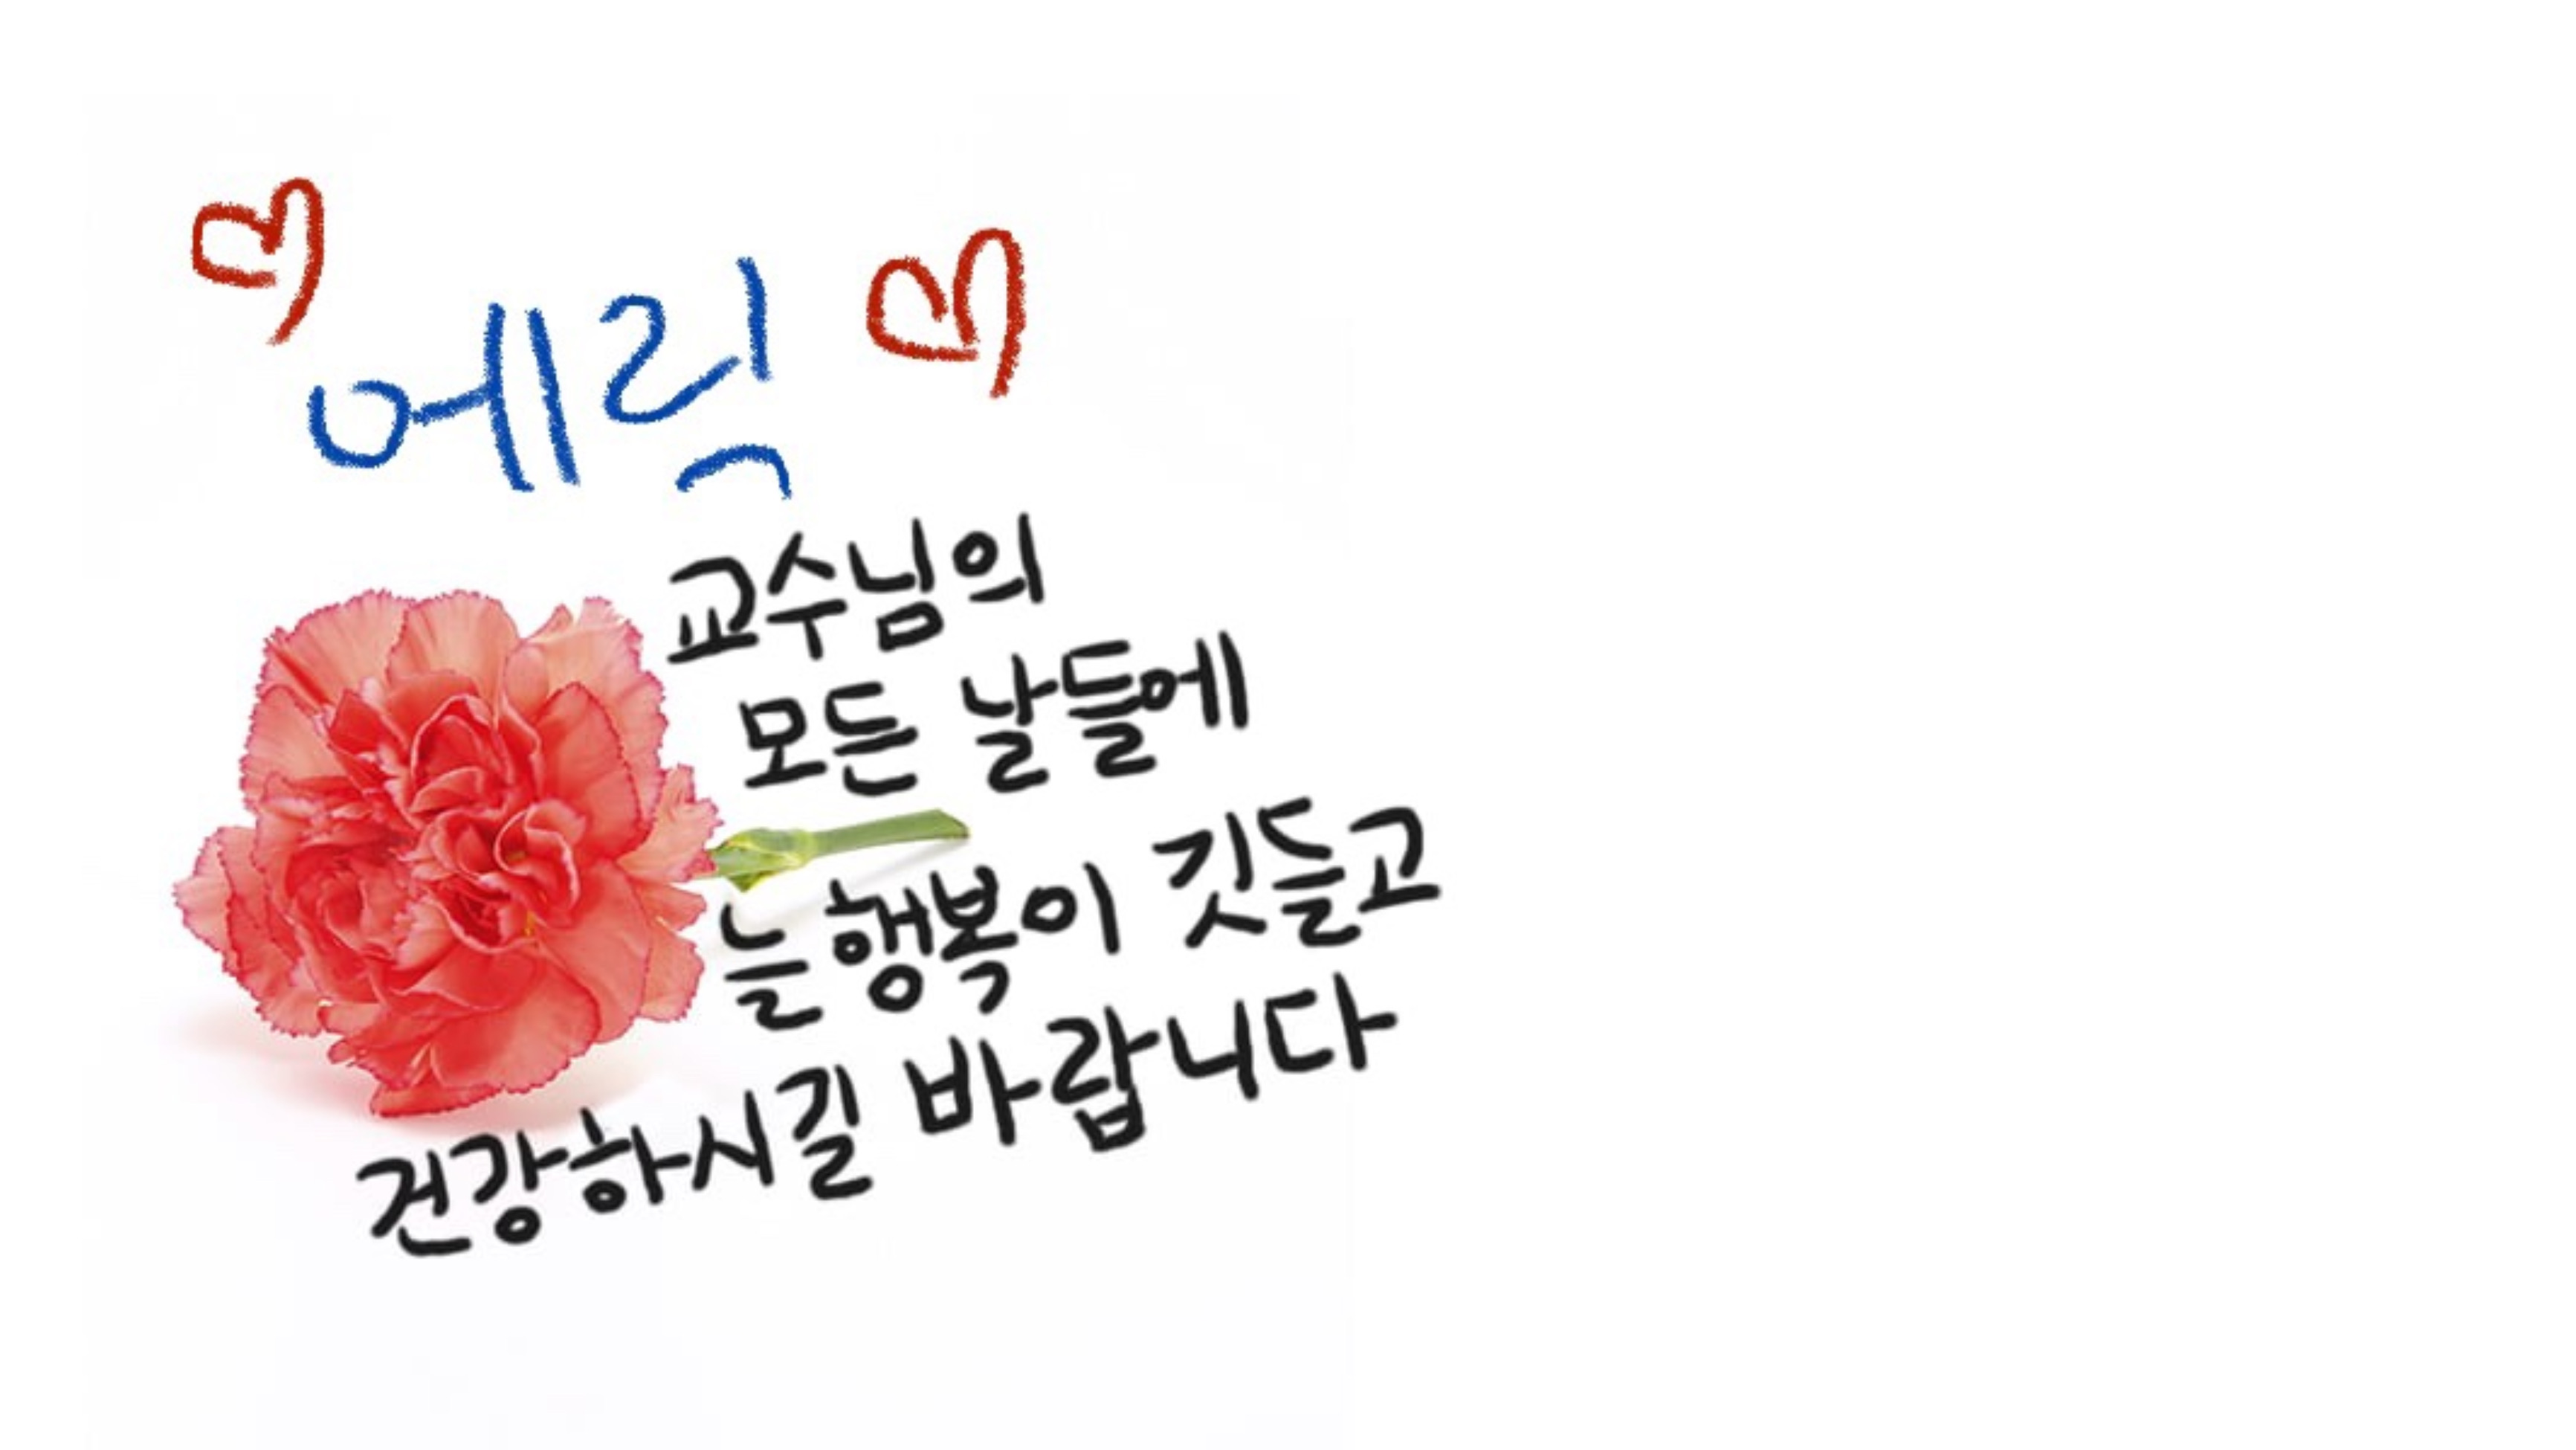 에릭
교수님의
모든 날들에
늘 행복이 깃들고
건강하시길 바랍니다